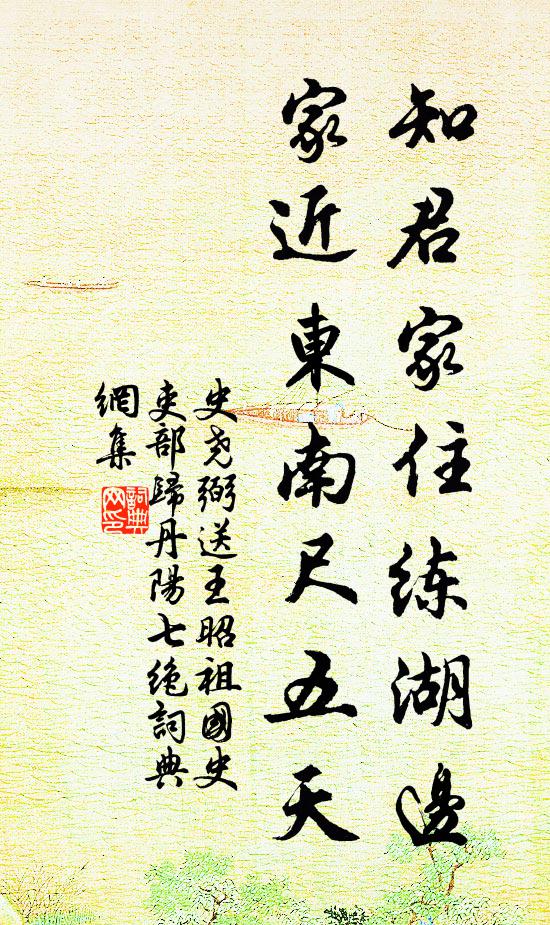 知君家住练湖邊
家近東南尺五天
史尧弼送王昭祖國史
吏部歸丹陽七絶詞典
網集
詞典
网印